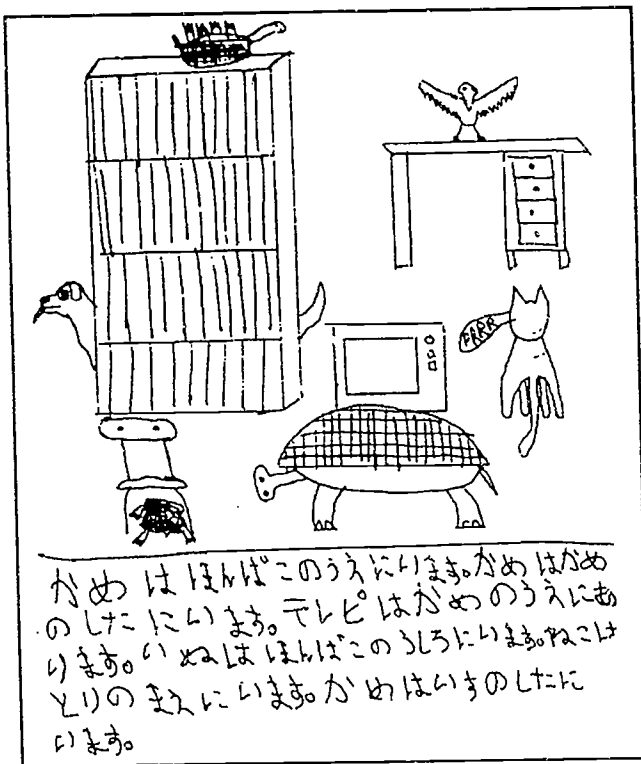 PRRR
かめ は ほんばこのうえにいます。かめ はかめ
の したに います。テレビ はかめ のうえにあ
ります。いぬは ほんばこの うしろにいます。ねこは
とりの まえ にいます。かめ はいすのしたに
います。